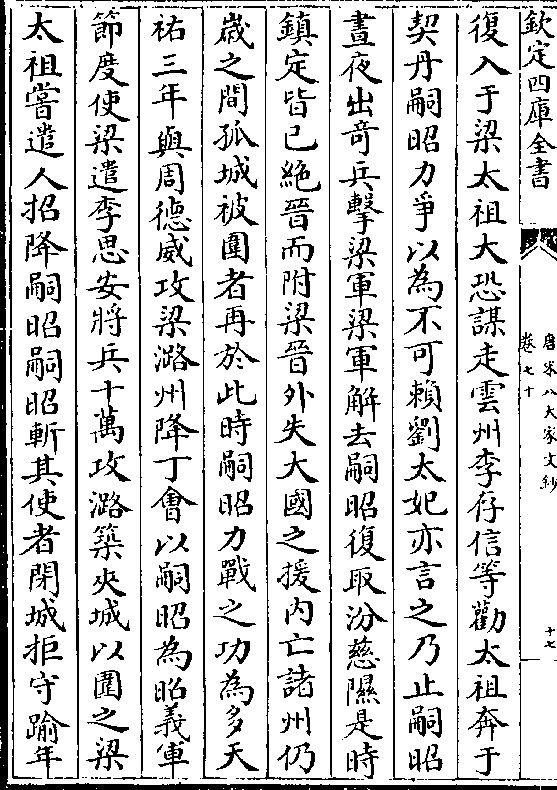 欽定四庫全書
唐宋八大家文鈔
卷七十
十七
復入于梁太祖大恐謀走雲州李存信等勸太祖奔于
契丹嗣昭力爭以為不可賴劉太妃亦言之乃止嗣昭
晝夜出竒兵擊梁軍梁軍解去嗣昭復取汾慈隰是時
鎮定皆已絶晉而附梁晉外失大國之援内亡諸州仍
嵗之間孤城被圍者再於此時嗣昭力戰之功為多天
祐三年與周德威攻梁潞州降丁㑹以嗣昭為昭義軍
節度使梁遣李思安將兵十萬攻潞築夾城以圍之梁
太祖嘗遣人招降嗣昭嗣昭斬其使者閉城拒守踰年